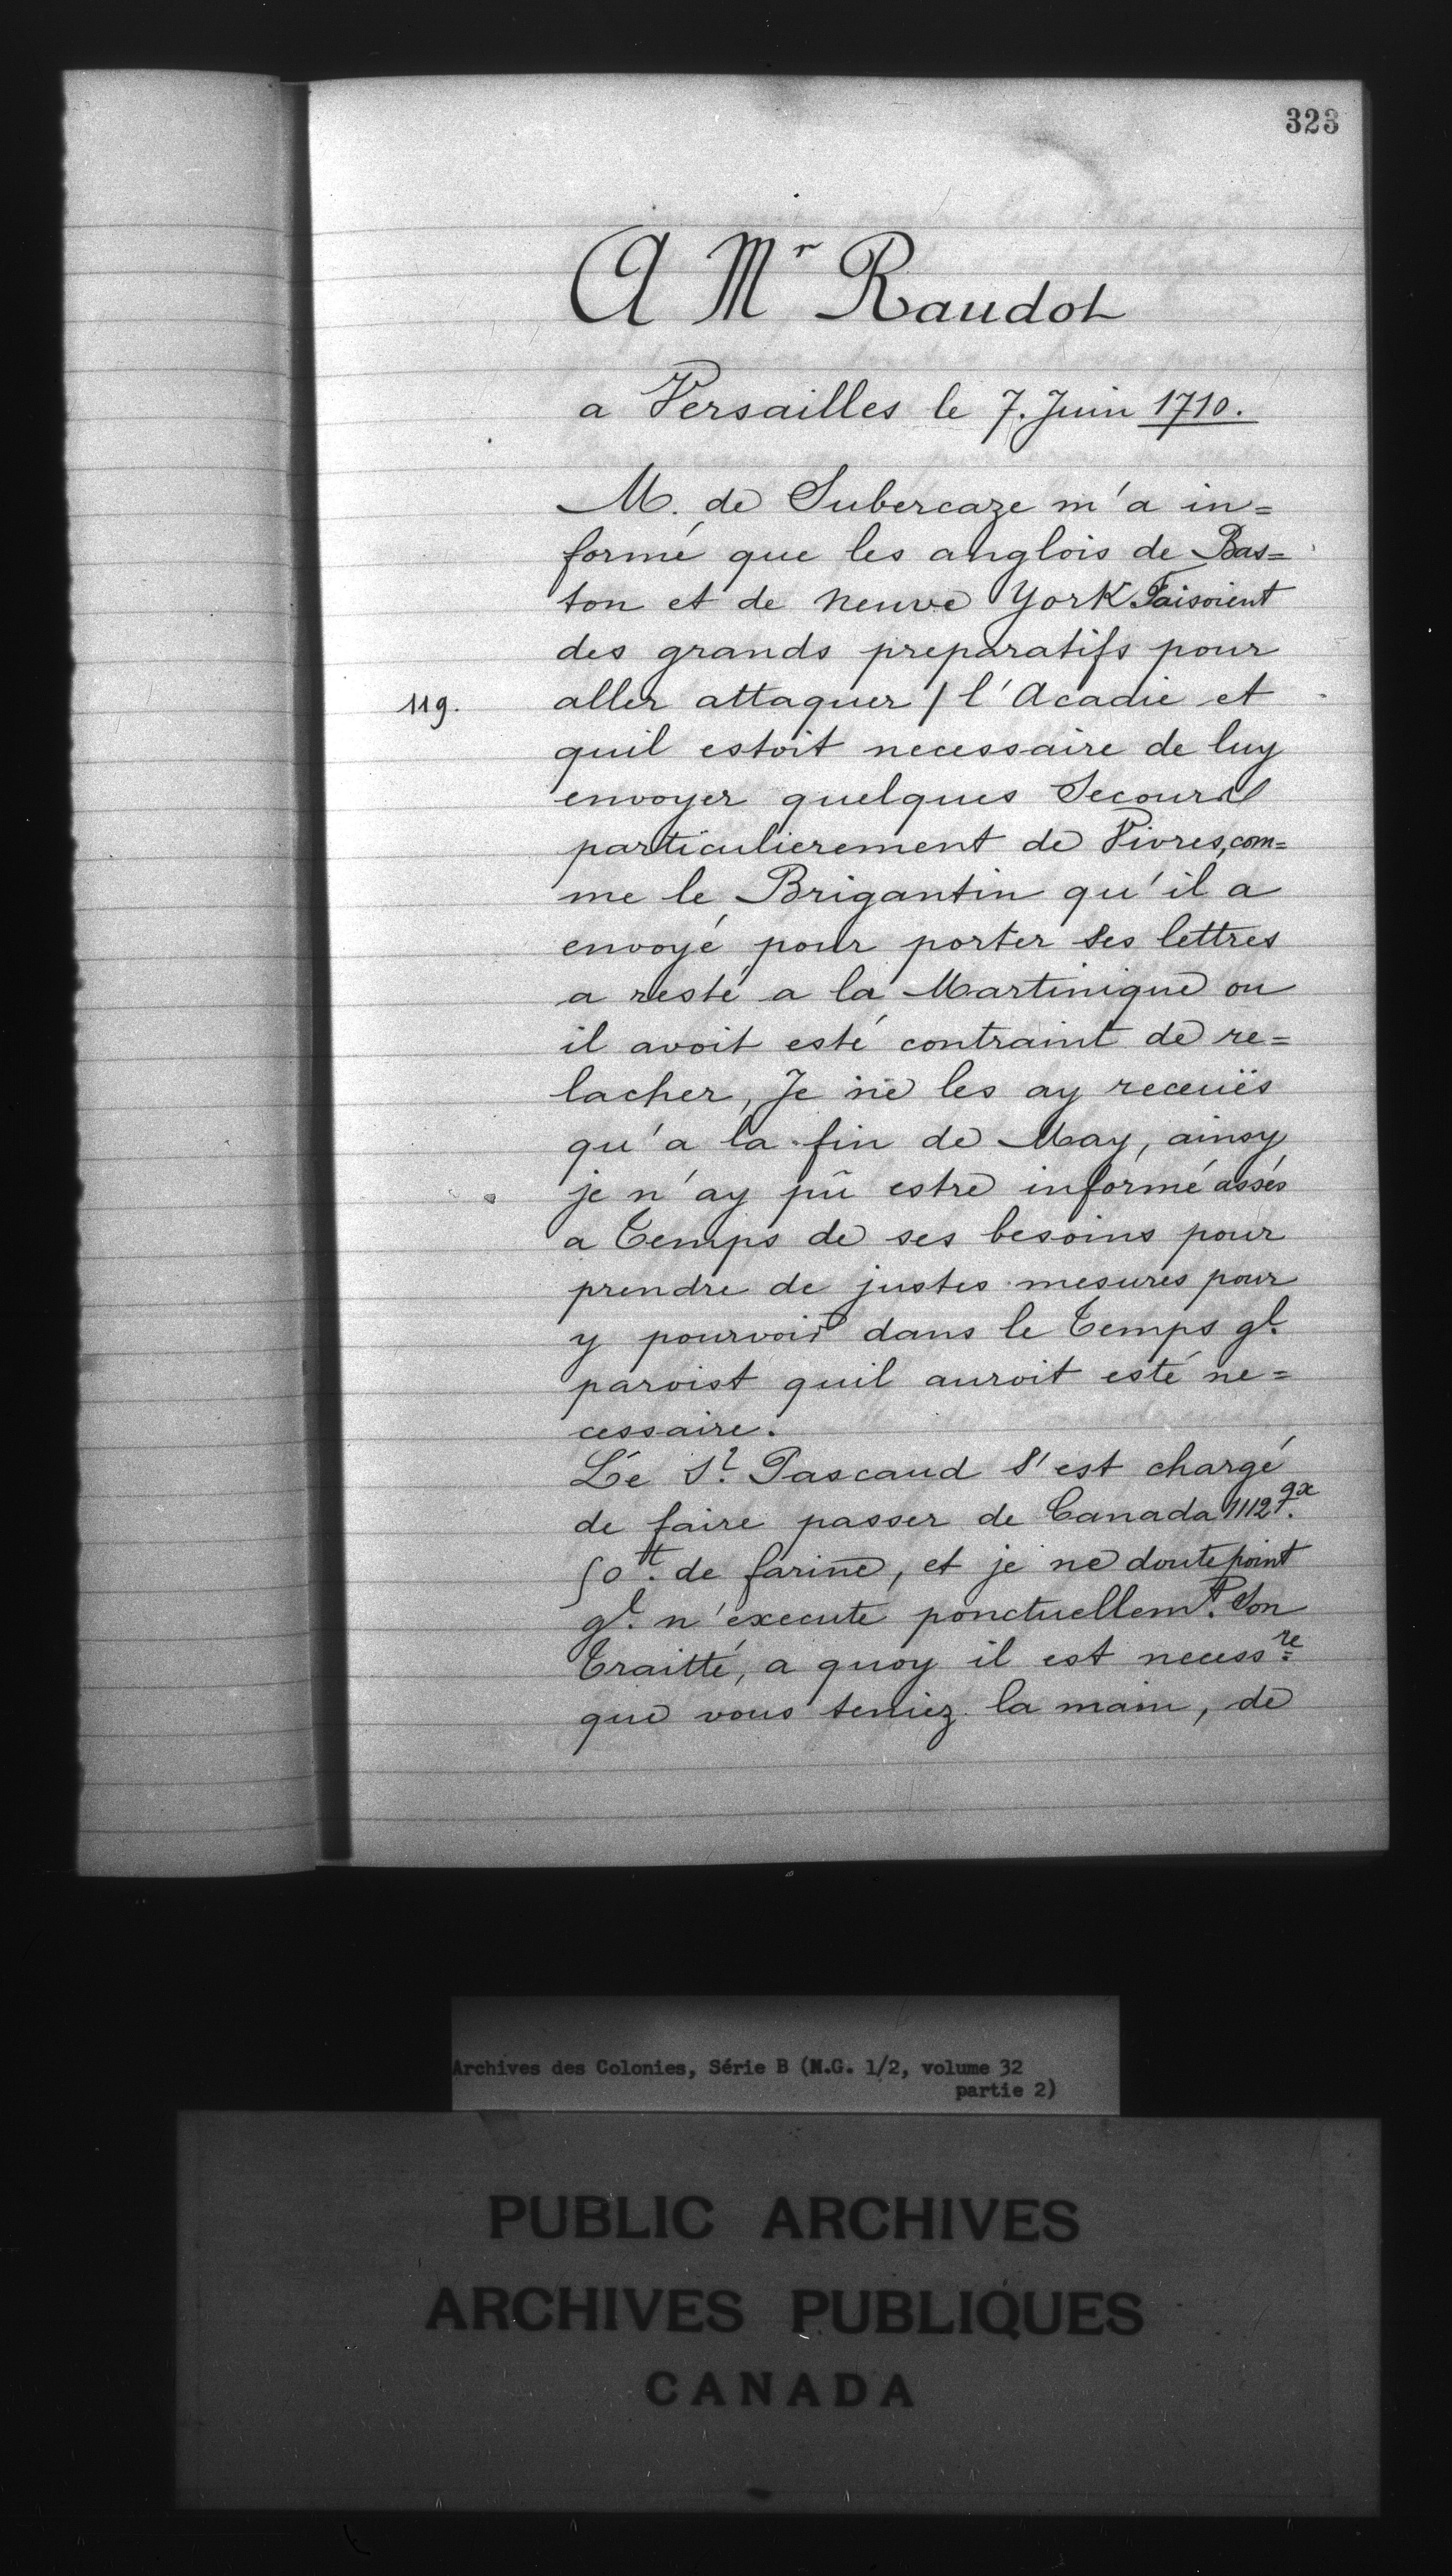 323
A Mr Raudot
a Versailles le 7. Juin 1710.
M. de Subercaze m'a in=
formé que les anglois de Bas=
ton et de neuve York Faisoient
des grands preparatifs pour
119.
aller attaquer / l'Acadie et
quil estoit necessaire de luy
envoyer quelques Secours
particulierement de Vivres, com=
me le Brigantin qu'il a
envoyé pour porter ses lettres
a resté a la Martinique ou
il avoit esté contraint de re=
lacher, Je ne les ay receuës
qu'a la fin de May, ainsy
je n'ay pû estre informé assés
a Temps de ses besoins pour
prendre de justes mesures pour
y pourvoir dans le Temps ql.
paroist quil auroit esté ne=
cessaire.
Le Sr. Pascaud s'est chargé
de faire passer de Canada 1112 qx.
50 tt. de farine, et je ne doute point
ql. n'execute ponctuellemt. Son
Traitté, a quoy il est necessre
que vous teniez la main, de
Archives des Colonies, Série B (N.G. 1/2, volume 32
partie 2)
PUBLIC ARCHIVES
ARCHIVES PUBLIQUES
CANADA